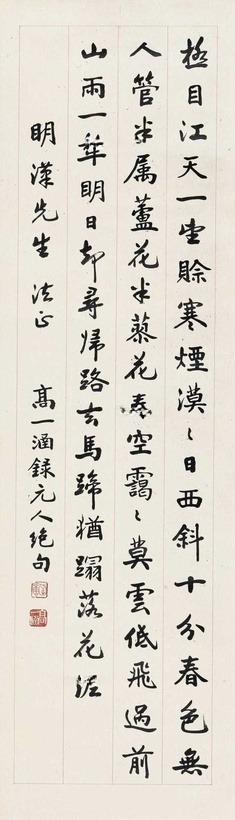 極目江天一望賒寒煙漠〻日西斜十分春色無
人管半属蘆花半蓼花春空靄〻莫雲低飛過前
山雨一犂明日却尋歸路去馬蹄猶蹋落花泥
明漢先生法正 高一涵録元人絶句